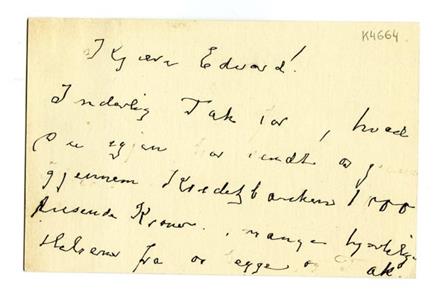 K4664
Kjære Edvard!
Inderlig Tak for, hvad
Du igjen har sendt os
gjennem Kreditbanken 1000
tusende Kroner. mange hjertelige
Hilsener fra os begge